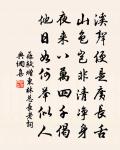 溪聲便是廣長舌
山色豈非清淨身
夜來八萬四千偈
他日如何舉似人
蘇軾贈東林總長老詞